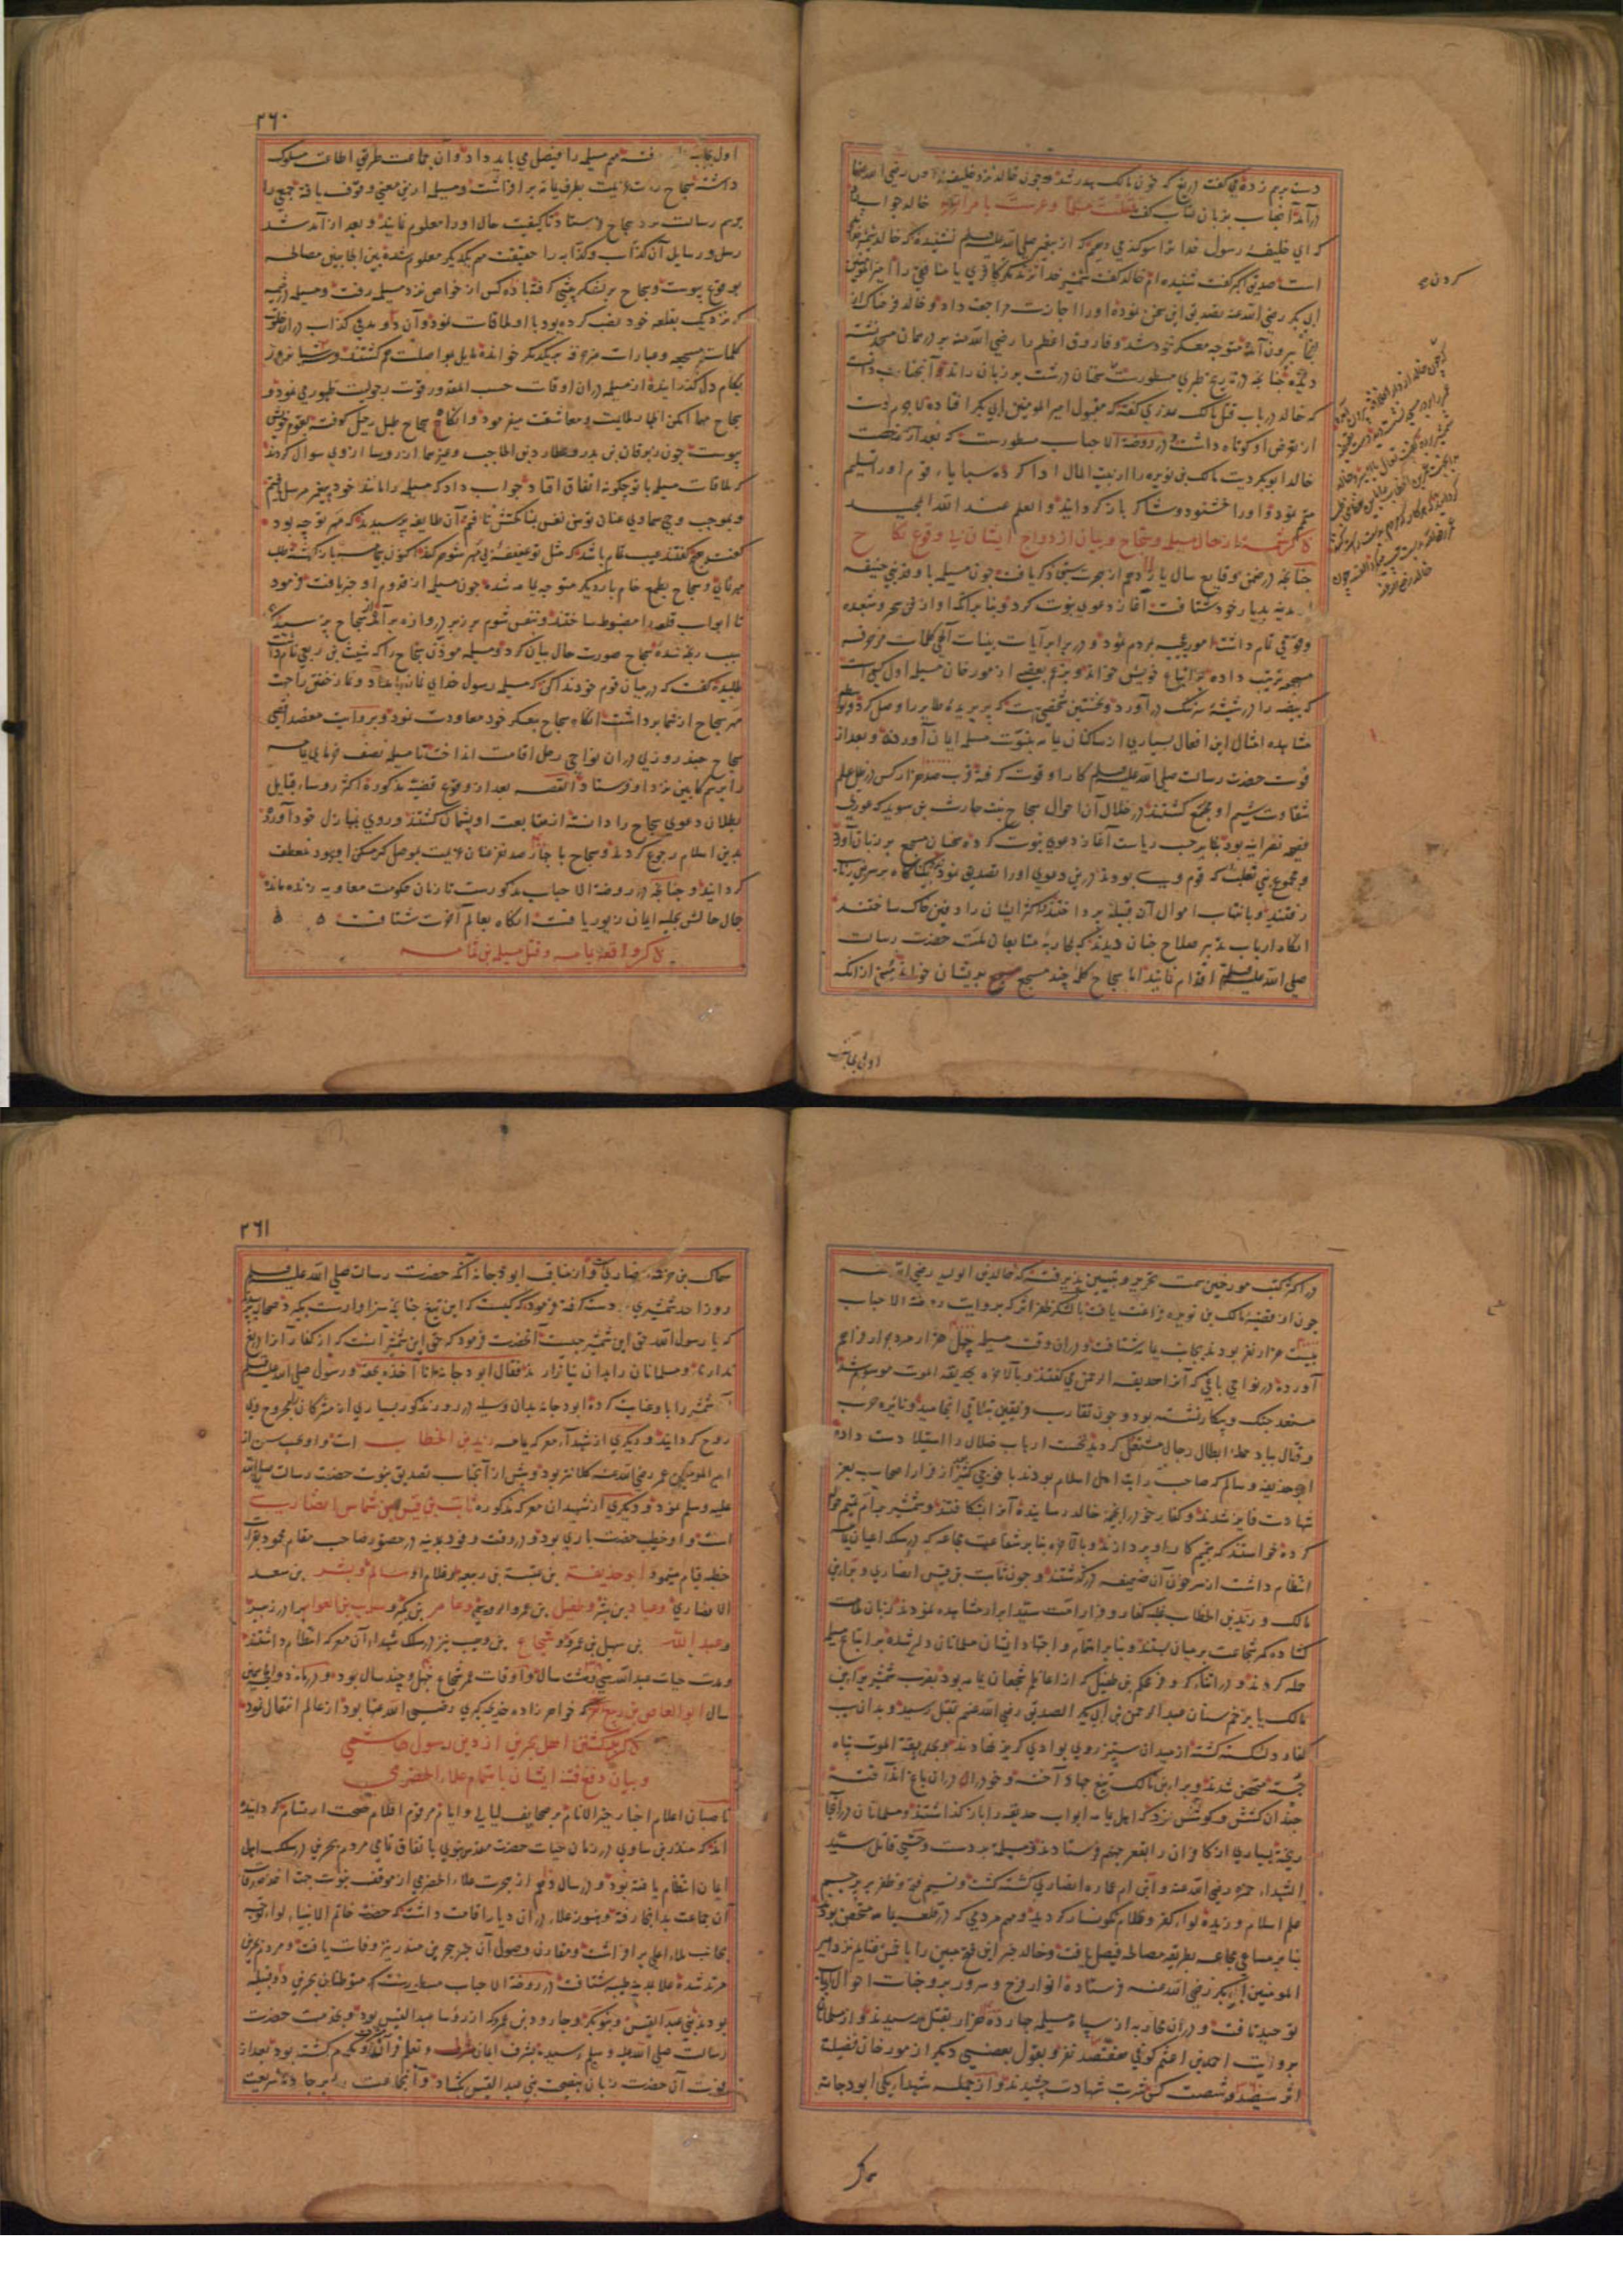 دست برهم زده می کفت دریغ که خون مالک هدر شد و چون خالد نزد خلیفه اول رضی الله عنها
درآمد آنجناب بزبان کفت قتلت مسلما وعرست بامراته خالد جواب داد
که ای خلیفه رسول خدا ترا سوکند می دهم که از پیغمبر صلی الله علیه وسلم نشنیدهٔ که خالد شمشیر خدا
است صدیق اکبر کفت شنیده ام خالد کفت شمشیر خدا نزند مکر کافری یا منافقی را امیرالمؤمنین
ابی بکر رضی الله عنه تصدیق این سخن نموده او را اجازت مراجعت داد و خالد
بیرون آمده متوجه معسکر خود شد و فاروق اعظم را رضی الله عنه بر در همان مسجد نشسته
دیده چنانچه در تاریخ طبری مسطورست سخنان درشت بر زبان راند و آنجناب دانست
که خالد در باب قتل مالک عذری کفته که مقبول امیر المومنین ابی بکر افتاده لاجرم دست
از تعرض او کوتاه داشت و در روضة الاحباب مسطورست که بعد از
خالد ابوبکر دیت مالک بن نویره را از بیت المال ادا کرده سبایاء قوم او را تسلیم
متمم نمود و او را خشنود و شاکر باز کردانید والعلم عند الله المجید
ذکر تتمهٔ از حال مسیلمه و سجاح و بیان ازدواج ایشان با وقوع نکاح
چنانچه در ضمن وقایع سال یازدهم از هجرت ذکر یافت چون مسیلمه با وفد بنی حنیفه
از مدینه بدیار خود شتافت آغاز دعوی نبوت کرد و بنا بر آنکه او از فن سحر و شعبده
وقوفی تمام داشت امور عجیبه بمردم نمود و در برابر آیات بینات الهی کلمات مزخرفه
مسجع ترتیب داده بر اتباع خویش خواند و بزعم بعضی از مورخان مسیلمه اول کسی است
که بیضه را در شیشهٔ سرتنک درآورد و نخستین شخصی است که پر بریدهٔ طایر را وصل کرد
مشاهده امثال این افعال بسیاری از ساکنان یمامه بنبوت مسیلمه ایمان آوردند و بعد از
فوت حضرت رسالت صلی الله علیه وسلم کار او قوت کرفته قرب صد هزار کس در ظل علم
شقاوت شیم او مجتمع کشتند در خلال آن احوال سجاح بنت حارث بن سوید که عورتی
فصیحه نصرانیه بود بنابر حب ریاست آغاز دعوی نبوت کرده سخنان مسجع بر زبان آورد
و مجموع بنی تغلب که قوم وی بودند در این دعوی او را تصدیق نمودند
رفتند و بانتهاب اموال آن قبیله پرداختند اکثر ایشان را دفین خاک ساختند
انکاه ارباب تدبیر صلاح چنان دیدند که بمحاربهٔ متابعان ملت حضرت رسالت
صلی الله علیه وسلم اقدام نمایند اما سجاح کلمهٔ چند مسجع بریشان خوانده
اول بجانب
کردن
۲۶۰
اول بجانب یمامه رفته مهم مسیلمه را فیصل می باید داد و آن جماعت طریق اطاعت مسلوک
داشته سجاح رایت عزیمت بطرف یمامه برافراشت و مسیلمه ازین معنی وقوف یافته جمعی را
برسم رسالت نزد سجاح فرستاد تا کیفیت حال او را معلوم نمایند و بعد از آمد شد
رسل و رسایل آن کذاب و کذابه را حقیقت مهم یکدیکر معلوم شده بین الجانبین مصالحه
بوقوع پیوست و سجاح بر لشکر پیشی کرفته با ده کس از خواص نزد مسیلمه رفت و مسیلمه در خیمه
که نزدیک بقلعه خود نصب کرده بود با او ملاقات نمود و آن دو مدعی کذاب در آن خلوت
کلمات مسجعه و عبارات مزخرفه بر یکدیکر خوانده مایل بمواصلت هم کشتند
بکام دل کذرانیده از مسیلمه در آن اوقات حسب المقدور قوت رجولیت بظهور می نمود و
سجاح مهما امکن اظهار ملایمت و معاشقت میفرمود و انکاه سجاح طبل رحیل کوفته بقوم خویش
پیوست چون زبرقان بن بدر و عطارد بن الحاجب و غیرهما از روسا از وی سوال کردند
که ملاقات مسیلمه با تو چکونه اتفاق افتاد جواب داد که مسیلمه را مانند خود پیغمبر مرسل یافتم
و بموجب وحی سماوی عنان توسن نفس بمناکحتش تافتم آن طایفه پرسیدند که مهر تو چه بود
کفت هیچ کفتند عیب تمام باشد که مثل تو عفیفهٔ بی مهر شوهر کند اکنون باز کشته طلب
مهر نمای و سجاح بطمع خام بار دیکر متوجه یمامه شده چون مسیلمه از قدوم او خبر یافت فرمود
تا ابواب قلعه را مضبوط ساختند و بنفس شوم بر زبر دروازه برآمده از سجاح پرسید که
سبب رنجه شده سجاح صورت حال بیان کرد و مسیلمه موذن سجاح را که شبث بن ربعی نام داشت
طلبیده کفت که در میان قوم خود ندا کن که مسیلمه رسول خدای نماز بامداد و نماز خفتن را جهت
مهر سجاح از شما برداشت انکاه سجاح بمعسکر خود معاودت نمود و بروایت مقصد اقصی
سجاح چند روزی در آن نواحی رحل اقامت انداخت تا مسیلمه نصف خرمای یمامه
را برسم کابین نزد او فرستاد القصه بعد از وقوع قضیه مذکوره اکثر روساء قبایل
بطلان دعوی سجاح را دانسته از متابعت او پشیمان کشتند و روی بمنازل خود آورده
بدین اسلام رجوع کردند و سجاح با چهار صد نفر عنان عزیمت بموصل که مسکن او بود منعطف
کردانید و چنانچه در روضة الاحباب مذکورست تا زمان حکومت معاویه زنده مانده
جمال حالش بحلیه ایمان زیور یافت انکاه بعالم آخرت شتافت
ذکر واقعهٔ یمامه و قتل مسیلمه بن ثمامه
در اکثر کتب مورخین سمت تحریر و تبیین پذیرفته که خالد بن الولید رضی الله عنه
چون از قضیهٔ مالک بن نویره فراغت یافت با لشکر ظفر اثر که بروایت روضة الاحباب
بیست هزار نفر بودند بجانب یمامه شتافت و در آن وقت مسیلمه چهل هزار مرد جرار فراهم
آورده در نواحی باغی که آنرا حدیقه الرحمن می کفتند و بالاخره بحدیقه الموت موسوم شد
مستعد جنک و پیکار نشسته بود و چون تقارب فریقین بتلاقی انجامید و نایره حرب
و قتال بباد حملهٔ ابطال رجال مشتعل کردید نخست ارباب ضلال را استیلا دست داده
ابو حذیفه و سالم که صاحب رایت اهل اسلام بودند با فوجی کثیر از ابرار اصحاب بعز
شهادت فایز شدند و کفار خود را بخیمهٔ خالد رسانیده آنرا بشکافتند و شمشیر
کرده خواستند که بمهم کار او پردازند و بالاخره بنابر شفاعت مجاعه که در سلک اعیان یمامه
انتظام داشت از سر خون آن ضعیفه درکذشتند و چون ثابت بن قیس انصاری و براء بن
مالک و زید بن الخطاب غلبه کفار و فرار امت سید ابرار مشاهده نمودند زبان ملامت
کشاده کمر شجاعت بر میان بستند و بنابر اهتمام و اجتهاد ایشان مسلمانان دلیر شده بر اتباع مسیلمه
حمله کردند و در اثناء کر و فر محکم بن طفیل که از اعاظم شجعان یمامه بود بضرب شمشیر براء بن
مالک یا بزخم سنان عبد الرحمن بن ابی بکر الصدیق رضی الله عنهم بقتل رسید و بدان سبب
کفار دلشکسته کشته از میدان ستیز روی بوادی کریز نهادند و بحدیقة الموت پناه
جسته متحصن شدند و براء بن مالک تیغ جهاد آخته و خود را در آن باغ انداخته
چندان کشش و کوشش نمود که اهل یمامه ابواب حدیقه را باز کذاشتند و مسلمانان در آنجا
ریخته بسیاری از کافران را بقعر جهنم فرستادند و مسیلمه بدست وحشی قاتل سید
الشهداء حمزه رضی الله عنه و ابن ام عماره انصاری کشته کشت و نسیم فتح و ظفر بر پرچم
علم اسلام وزیده لواء کفر و ظلام نکونسار کردید و مهم مردمی که در قلعه یمامه متحصن بودند
بنابر مساعی مجاعه بطریقه مصالحه فیصل یافت و خالد خبر این فتح مبین را با خمس غنایم نزد امیر
المومنین ابی بکر رضی الله عنه فرستاده انوار فرح و سرور بر وجنات احوال
توحید تافت و در آن محاربه از سپاه مسیلمه چهارده هزار بقتل رسیدند و از مسلمانان
بروایت احمد بن اعثم کوفی هفتصد نفر و بقول بعضی دیکر از مورخان فضیلت
اثر سیصد و شصت کس شربت شهادت چشیدند و از جمله شهدا یکی ابو دجانه
سماک
۲۶۱
سماک بن خرشه انصاریست و از مناقب ابو دجانه آنکه حضرت رسالت صلی الله علیه وسلم
روز احد شمشیری بدست کرفته فرمود که کیست که این تیغ چنانچه سزاوارست بکیرد صحابه پرسیدند
که یا رسول الله حق این شمشیر چیست آنحضرت فرمود که حق این شمشیر آنست که از کفار آنرا دریغ
ندارند و مسلمانان را بدان نیازارند فقال ابو دجانه انا آخذه بحقه و رسول صلی الله علیه وسلم
آن شمشیر را باو عنایت کرده ابو دجانه بدان وسیله در روز مذکور بسیاری از مشرکان را مجروح و بی
روح کردانید و دیکری از شهداء معرکه یمامه زید بن الخطاب است و او بحسب سن از
امیر المومنین عمر رضی الله عنه کلانتر بود و پیش از آنجناب تصدیق نبوت حضرت رسالت صلی الله
علیه وسلم نمود و دیکری از شهیدان معرکه مذکوره ثابت بن قیس بن شماس انصاریست
است و او خطیب حضرت باری بود و در وقت وفود بمدینه در حضور صاحب مقام محمود بقراءت
خطبه قیام مینمود و ابو حذیفه بن عتبة بن ربیعه و غلام او سالم و بشر بن سعد
الانصاری و عباد بن بشر و طفیل بن عمرو الدوسی و عامر بن بکیر و سایب بن العوام برادر زبیر
و عبد الله بن سهیل بن عمرو و شجاع بن وهب نیز در سلک شهداء آن معرکه انتظام داشتند
و مدت حیات عبد الله سی و هشت سال و اوقات عمر شجاع چهل و چند سال بود و در ماه ذی الحجه همین
سال ابو العاص بن ربیع که خواهر زاده خدیجه کبری رضی الله عنها بود از عالم انتقال نمود
ذکر برکشتن اهل بحرین از دین رسول هاشمی
و بیان دفع فتنه ایشان باهتمام علاء الحضرمی
ناصبان اعلام اخبار خیر الانام بر صحایف لیالی و ایام مرقوم اقلام صحت ارتسام کردانیده
اند که منذر بن ساوی در زمان حیات حضرت مقدس نبوی باتفاق تمامی مردم بحرین در سلک اهل
ایمان انتظام یافته بود و در سال نهم از هجرت علاء الحضرمی از موقف نبوت جهت اخذ صدقات
آن جماعت بدانجا رفته و هنوز علاء در آن دیار اقامت داشت که حضرت خاتم الانبیاء لواء توجه
بجانب ملاء اعلی برافراشت و مقارن وصول آن خبر بحرین منذر نیز وفات یافت و مردم بحرین
مرتد شده علا بمدینه طیبه شتافت در روضة الاحباب مسطورست که متوطنان بحرین دو قبیله
بودند بنی عبد القیس و بنو بکر و جارود بن عمرو که از رؤسا عبد القیس بود و بخدمت حضرت
رسالت صلی الله علیه وسلم رسیده بشرف ایمان مشرف و تعلیم قرآن مکرم کشته بود بعد از
فوت آن حضرت زبان بنصیحت بنی عبد القیس بکشاد و آن جماعت را بر جاده شریعت